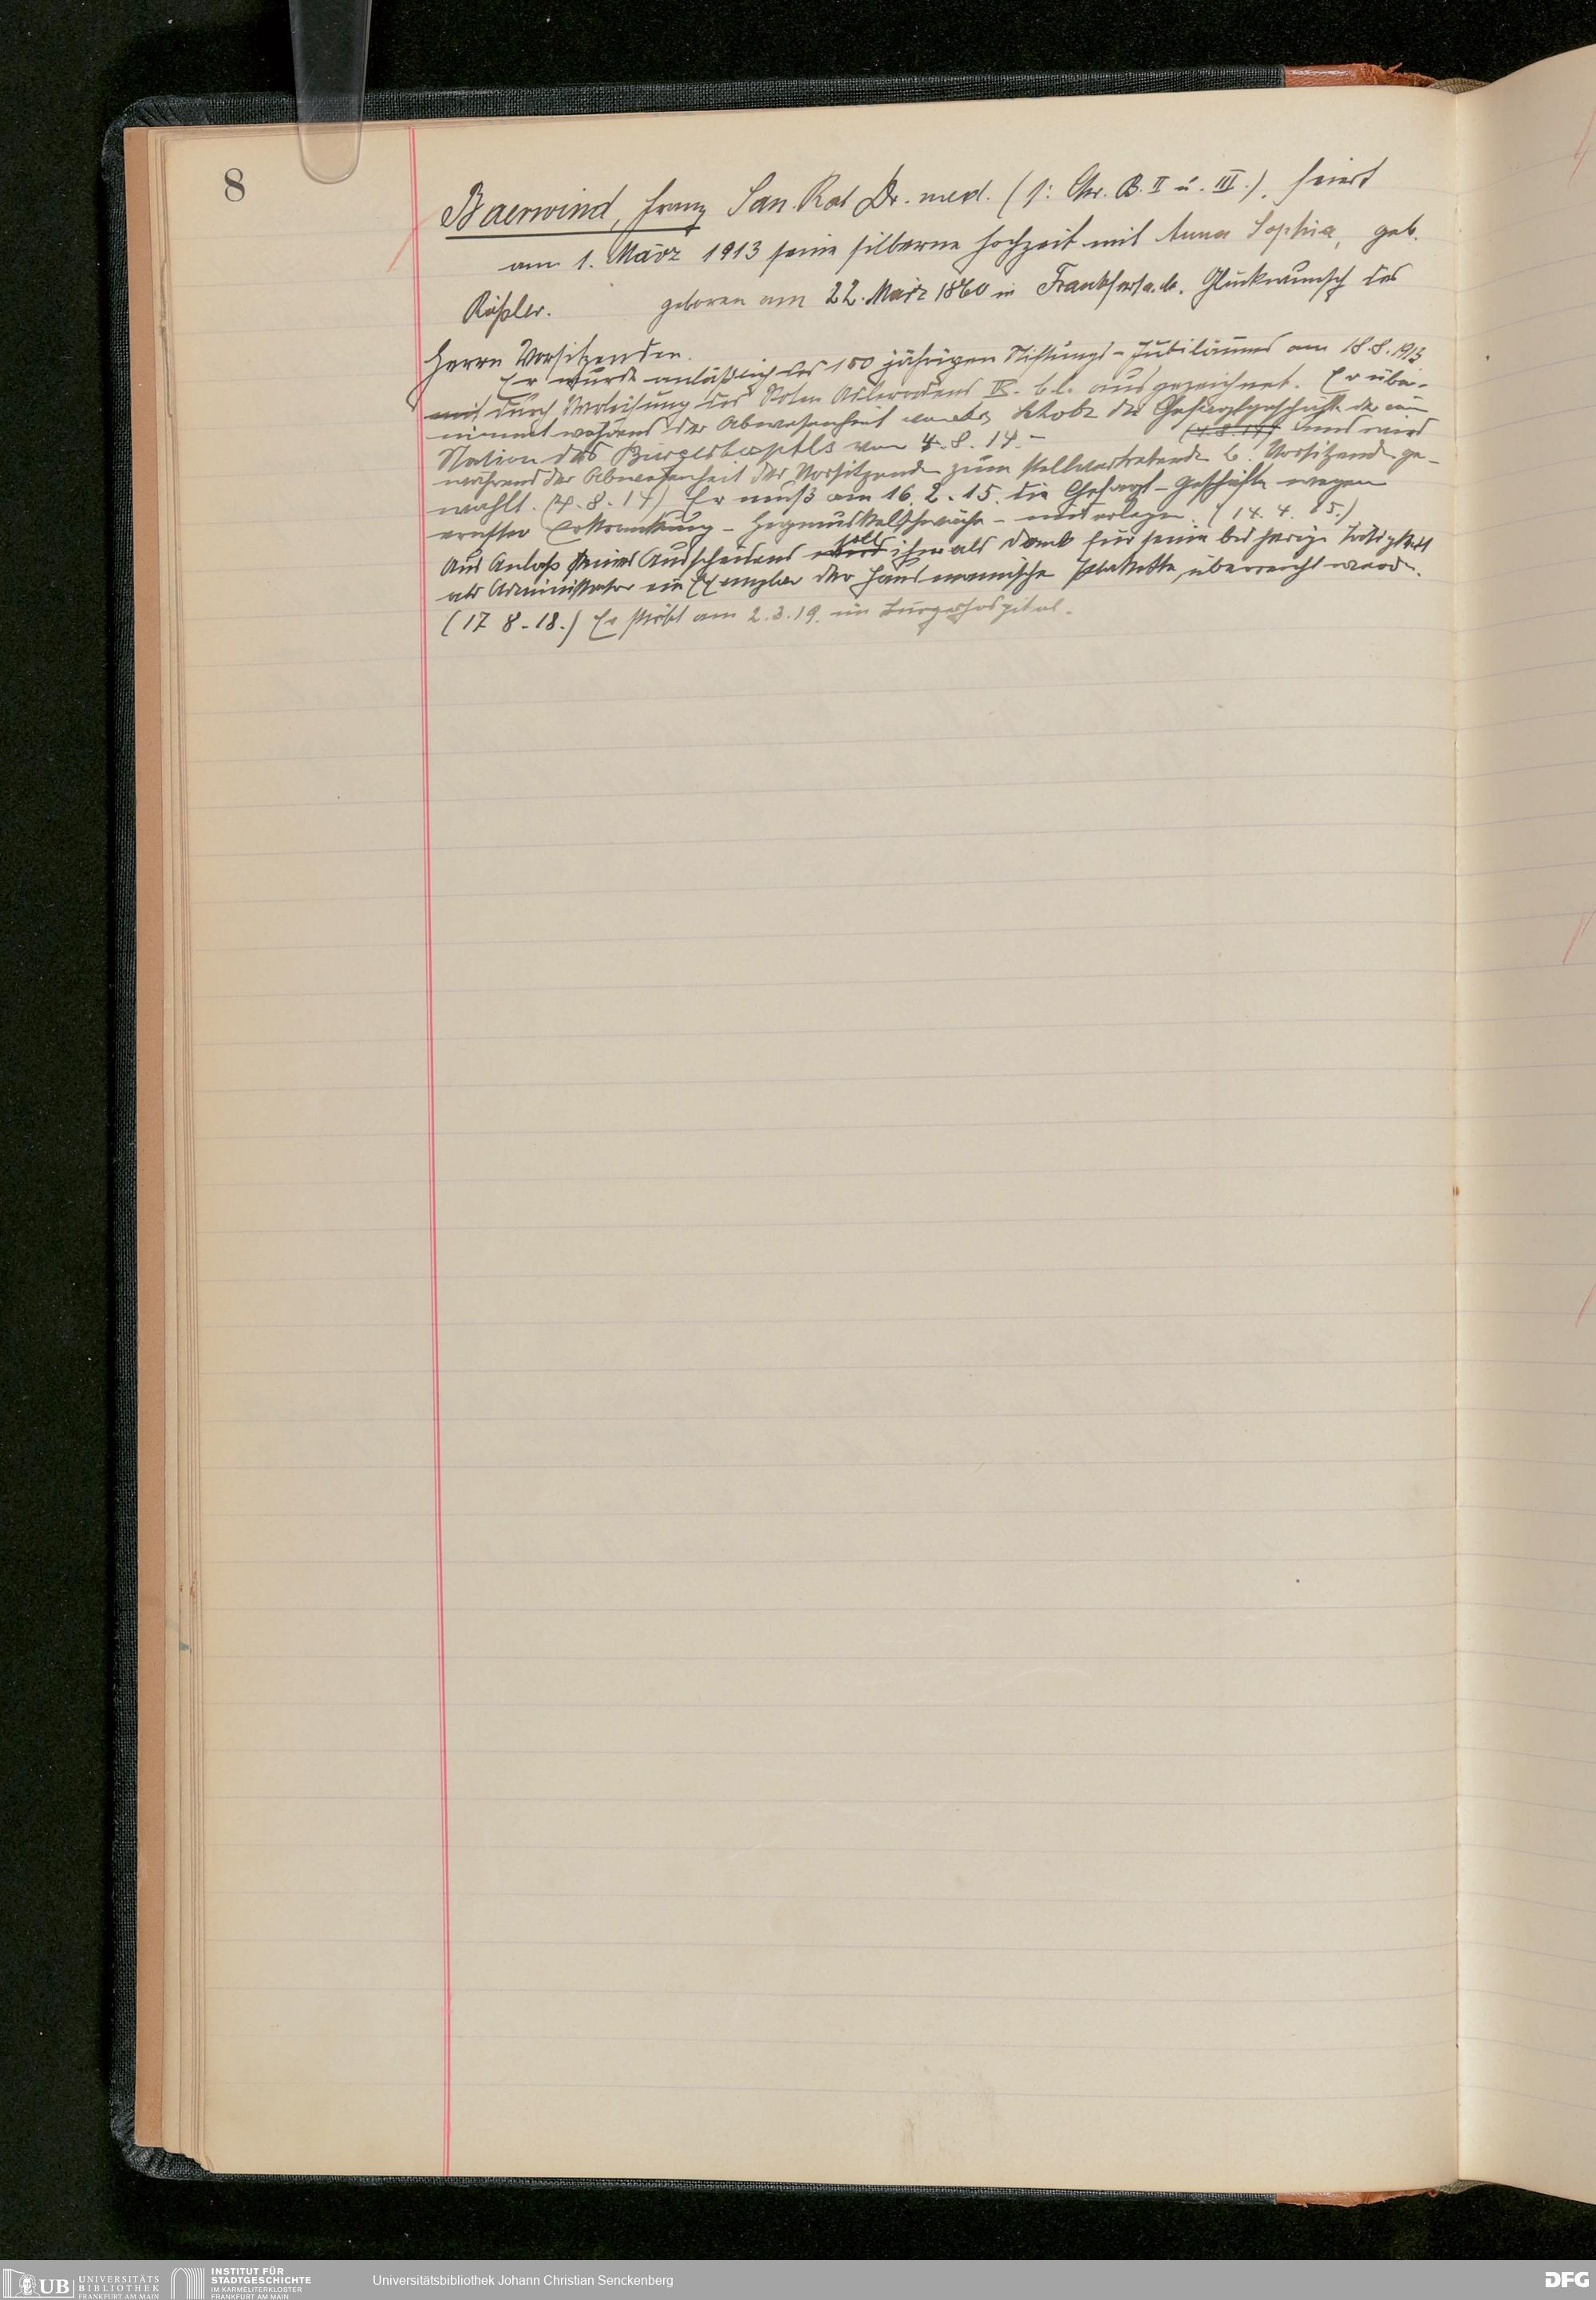 8
Baerwind, Franz San. Rat Dr. med. (s: Chr. B. II u. III.), feiert
am 1. März 1913 seine silberne Hochzeit mit Anna Sophia, geb.
Rößler. geboren am 22. März 1860 in Frankfurt a. M. Glückwunsch des
Herrn Vorsitzenden.
Er wurde anläßlich des 150 jährigen Stiftungs-Jubiläums am 18.8.1913
durch Verleihung des Roten Adlerordens IV. Kl. ausgezeichnet. Er über-
nimmt während der Abwesenheit von der
Station des Bürgerhospitals vom 4.8.14.- (4.8.14) und wird
während der Abwesenheit des Vorsitzenden zum stellvertretenden Vorsitzenden ge-
wählt. (4.8.14) Er muß am 16.2.15. die Chefarzt-Geschäfte wegen
ernster Erkrankung - Herzmuskelschwäche - niederlegen. (14.4.15.)
Aus Anlass seines Ausscheidens soll ihm als Dank für seine bisherige Tätigkeit
als Administrator ein Exemplar der Plakette überreicht werden.
(17 8.18.) Er stirbt am 2.3.19. im Bürgerhospital.
UB
UNIVERSITÄTS
BIBLIOTHEK
FRANKFURT AM MAIN
INSTITUT FÜR
STADTGESCHICHTE
IM KARMELITERKLOSTER
FRANKFURT AM MAIN
Universitätsbibliothek Johann Christian Senckenberg
DFG